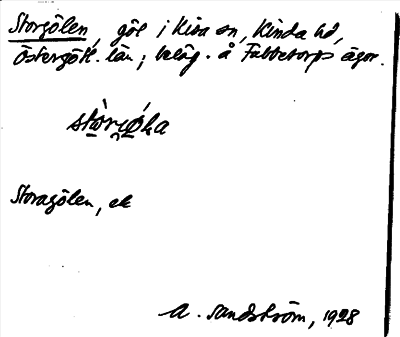 Storgölen, göl i Kisa sn, Kinda hd,
Östergötl. län; beläg. å Fabbetorps ägor.
stòrjǿla
Storagölen, ek
A. Sandström, 1928